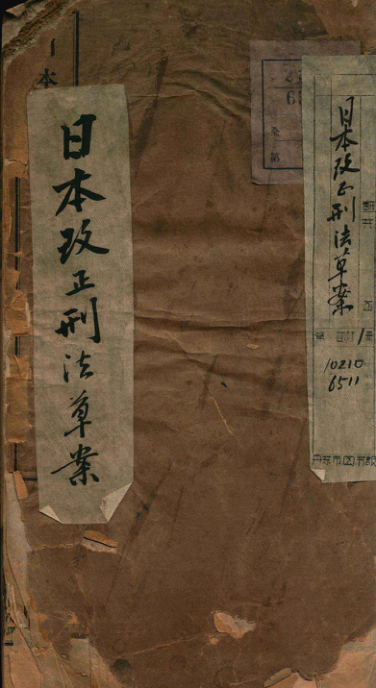 本
日本改正刑法草案
日本改正刑法草案
10210
6511